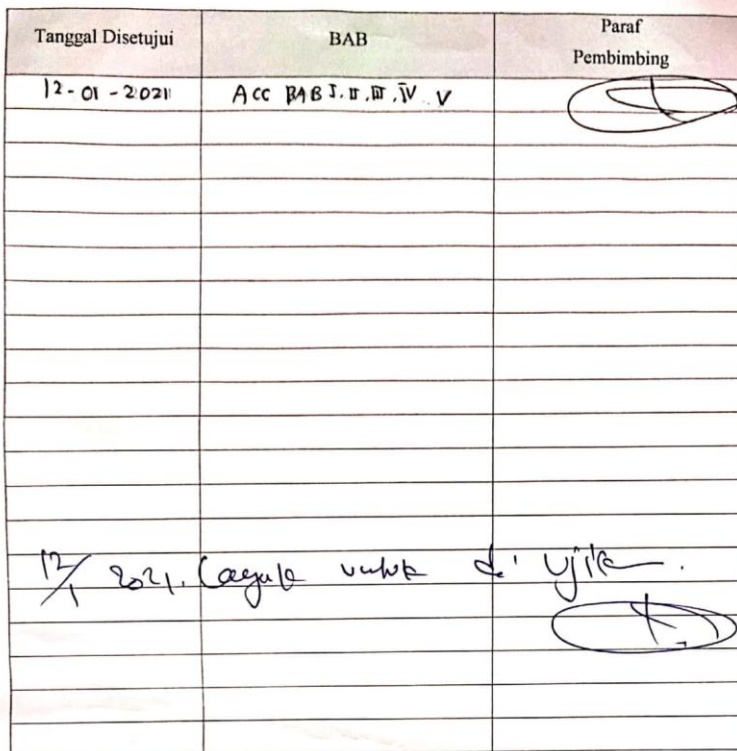 Tanggal Disetujui BAB Paraf
Pembimbing
12-01-2021 ACC BAB I. II. III. IV V
12/1 2021. Layak untuk di ujikan.